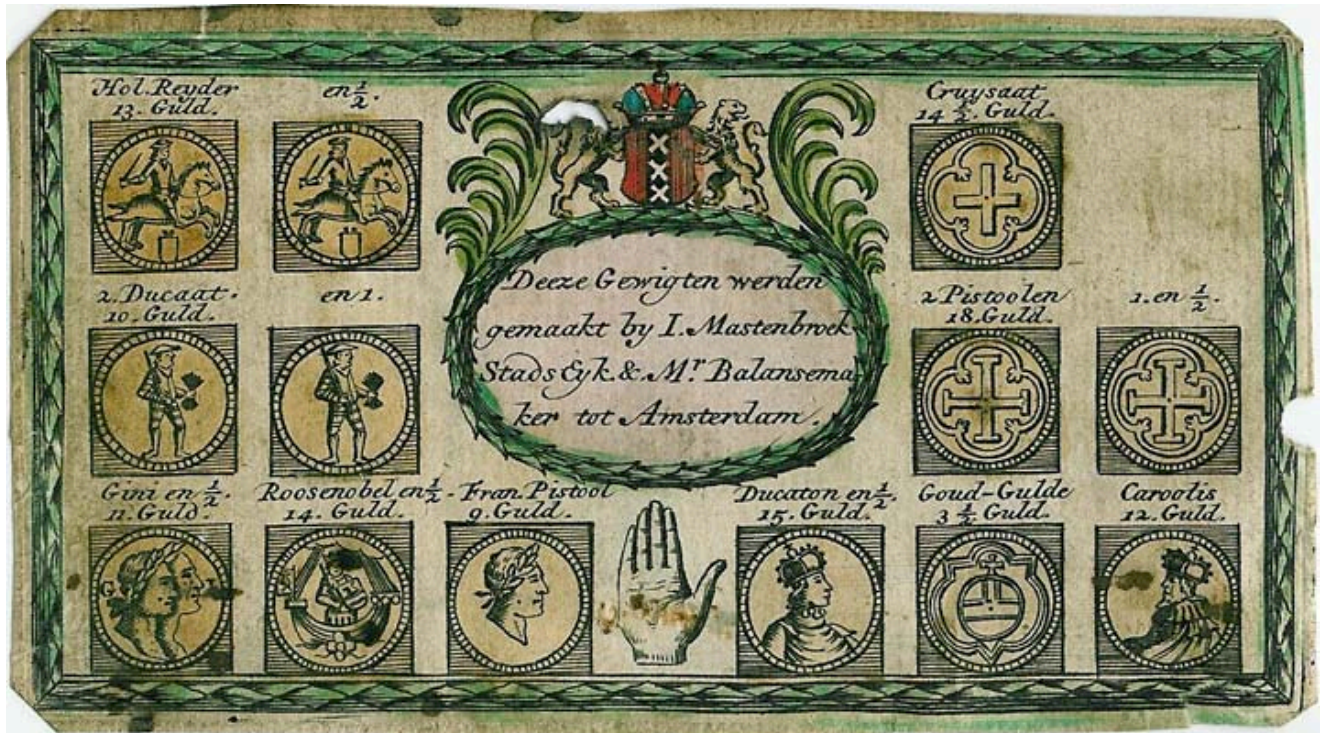 Hol. Reyder
13. Guld.
en 1/2.
Cruysaat
14 1/2. Guld.
Deeze Gewigten werden
gemaakt by I. Mastenbroek
Stads Eyk. & Mr Balansema
ker tot Amsterdam.
2. Ducaat.
10. Guld.
en 1.
2 Pistoolen
18. Guld.
1. en 1/2.
Gini en 1/2.
11. Guld.
Roosenobel en 1/2.
14. Guld.
Fran. Pistool
9. Guld.
Ducaton en 1/2.
15. Guld.
Goud-Gulde
3 1/2. Guld.
Caroolis
12. Guld.